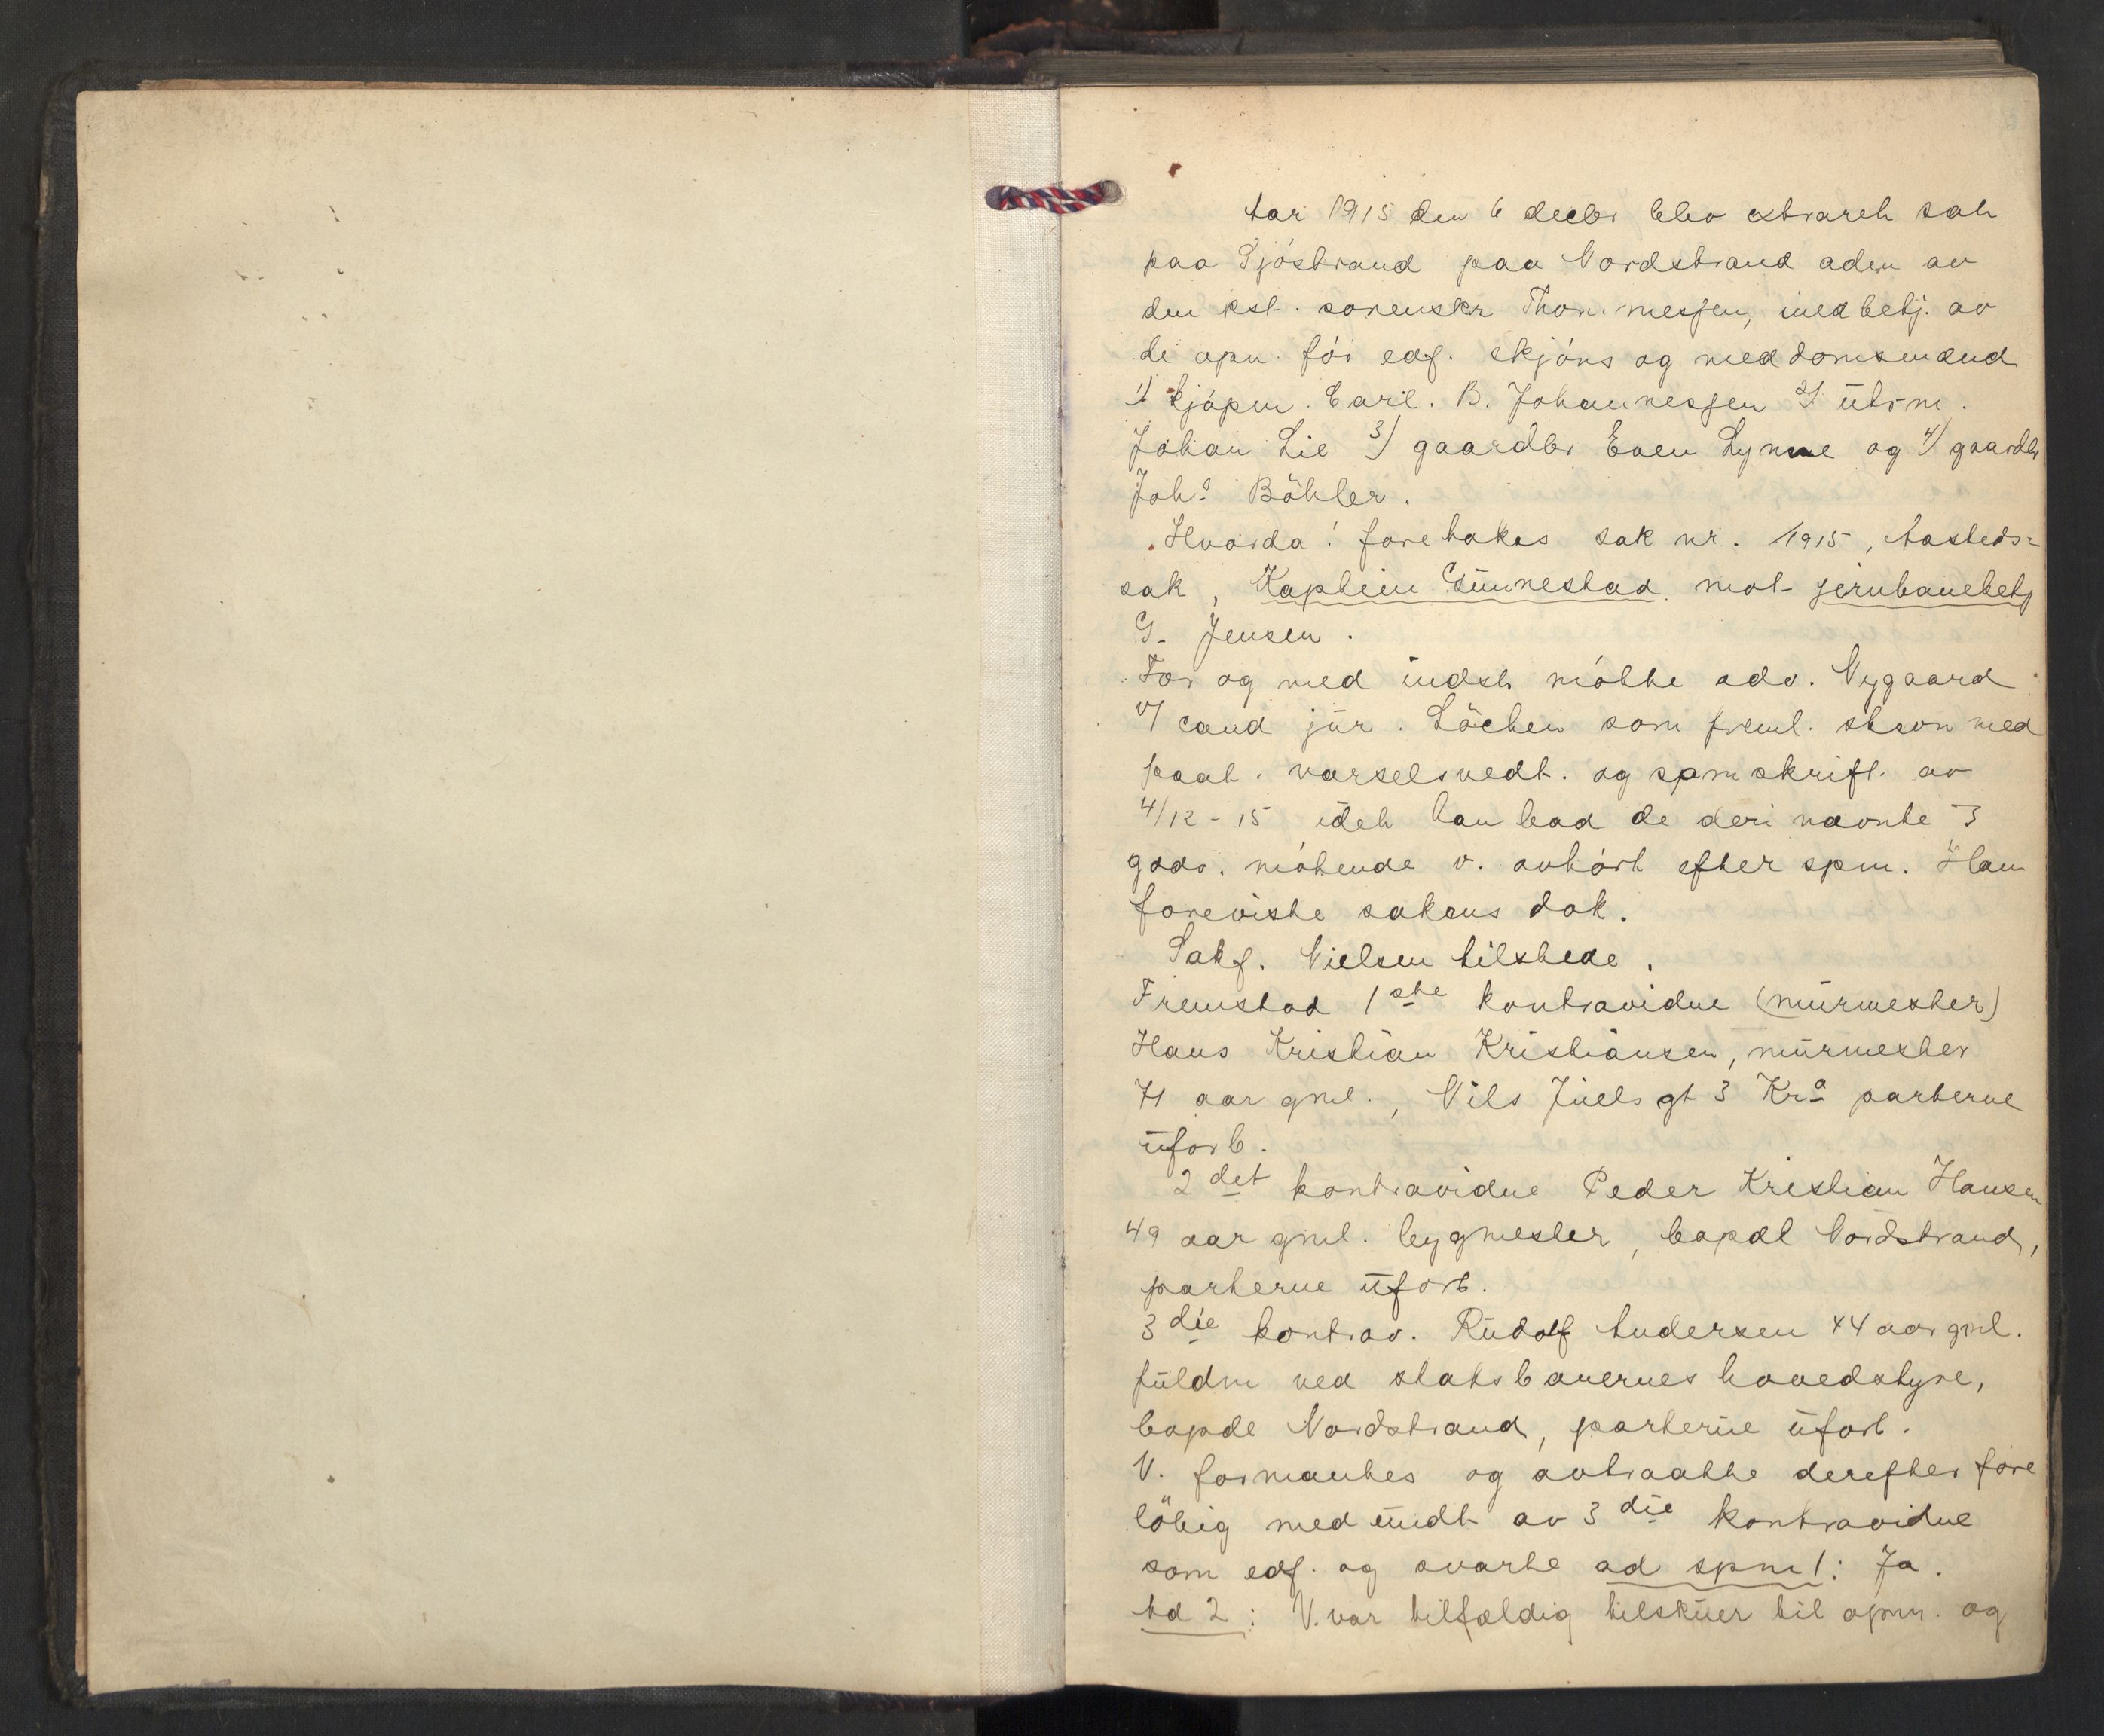 Aar 1915 den 6 decbr blev extraret sat
paa Sjöstrand paa Nordstrand adm av
den kst. sorenskr Thommessen, med betj. av
de opn. för edf. skjöns og meddomsmænd
1) kjöpm. Caril. B. Johannessen 2) utrm.
Johan Lie 3) gaardbr Even Lynne og 4) gaardbr
Johs Böhler.
Hvorda! foretokes sak nr. 1915, aasteds-
sak, Kaptein Gunnestad mot jernbanebetj
G. Jensen.
For og med indst mötte adv. Nygaard
v/ cand jur. Löchen som freml. stevn med
paat. varselsvedt. og spmskrift. av
4/12-15 idet han bad de deri nævnte 3
godv. mötende v. avhört efter spm. Han
foreviste sakens dok.
Sakf. Nielsen tilstede.
Fremstod 1ste kontravidne (murmester)
Hans Kristian Kristiansen, murmester
71 aar gml., Nils Juels gt 3 Kra parterne
uforb.
2det kontravidne Peder Kristian Hansen
49 aar gml. bygmester, bopæl Nordstrand,
parterne uforb.
3die kontrav. Rudolf Andersen 44 aar gml.
fuldm ved statsbanernes hovedstyre,
bopæl Nordstrand, parterne uforb.
V. formantes og avtraatte derefter fore
löbig med undt av 3die kontravidne
som edf. og svarte ad spm 1: Ja.
Ad 2: V. var tilfældig tilskuer til opm. og